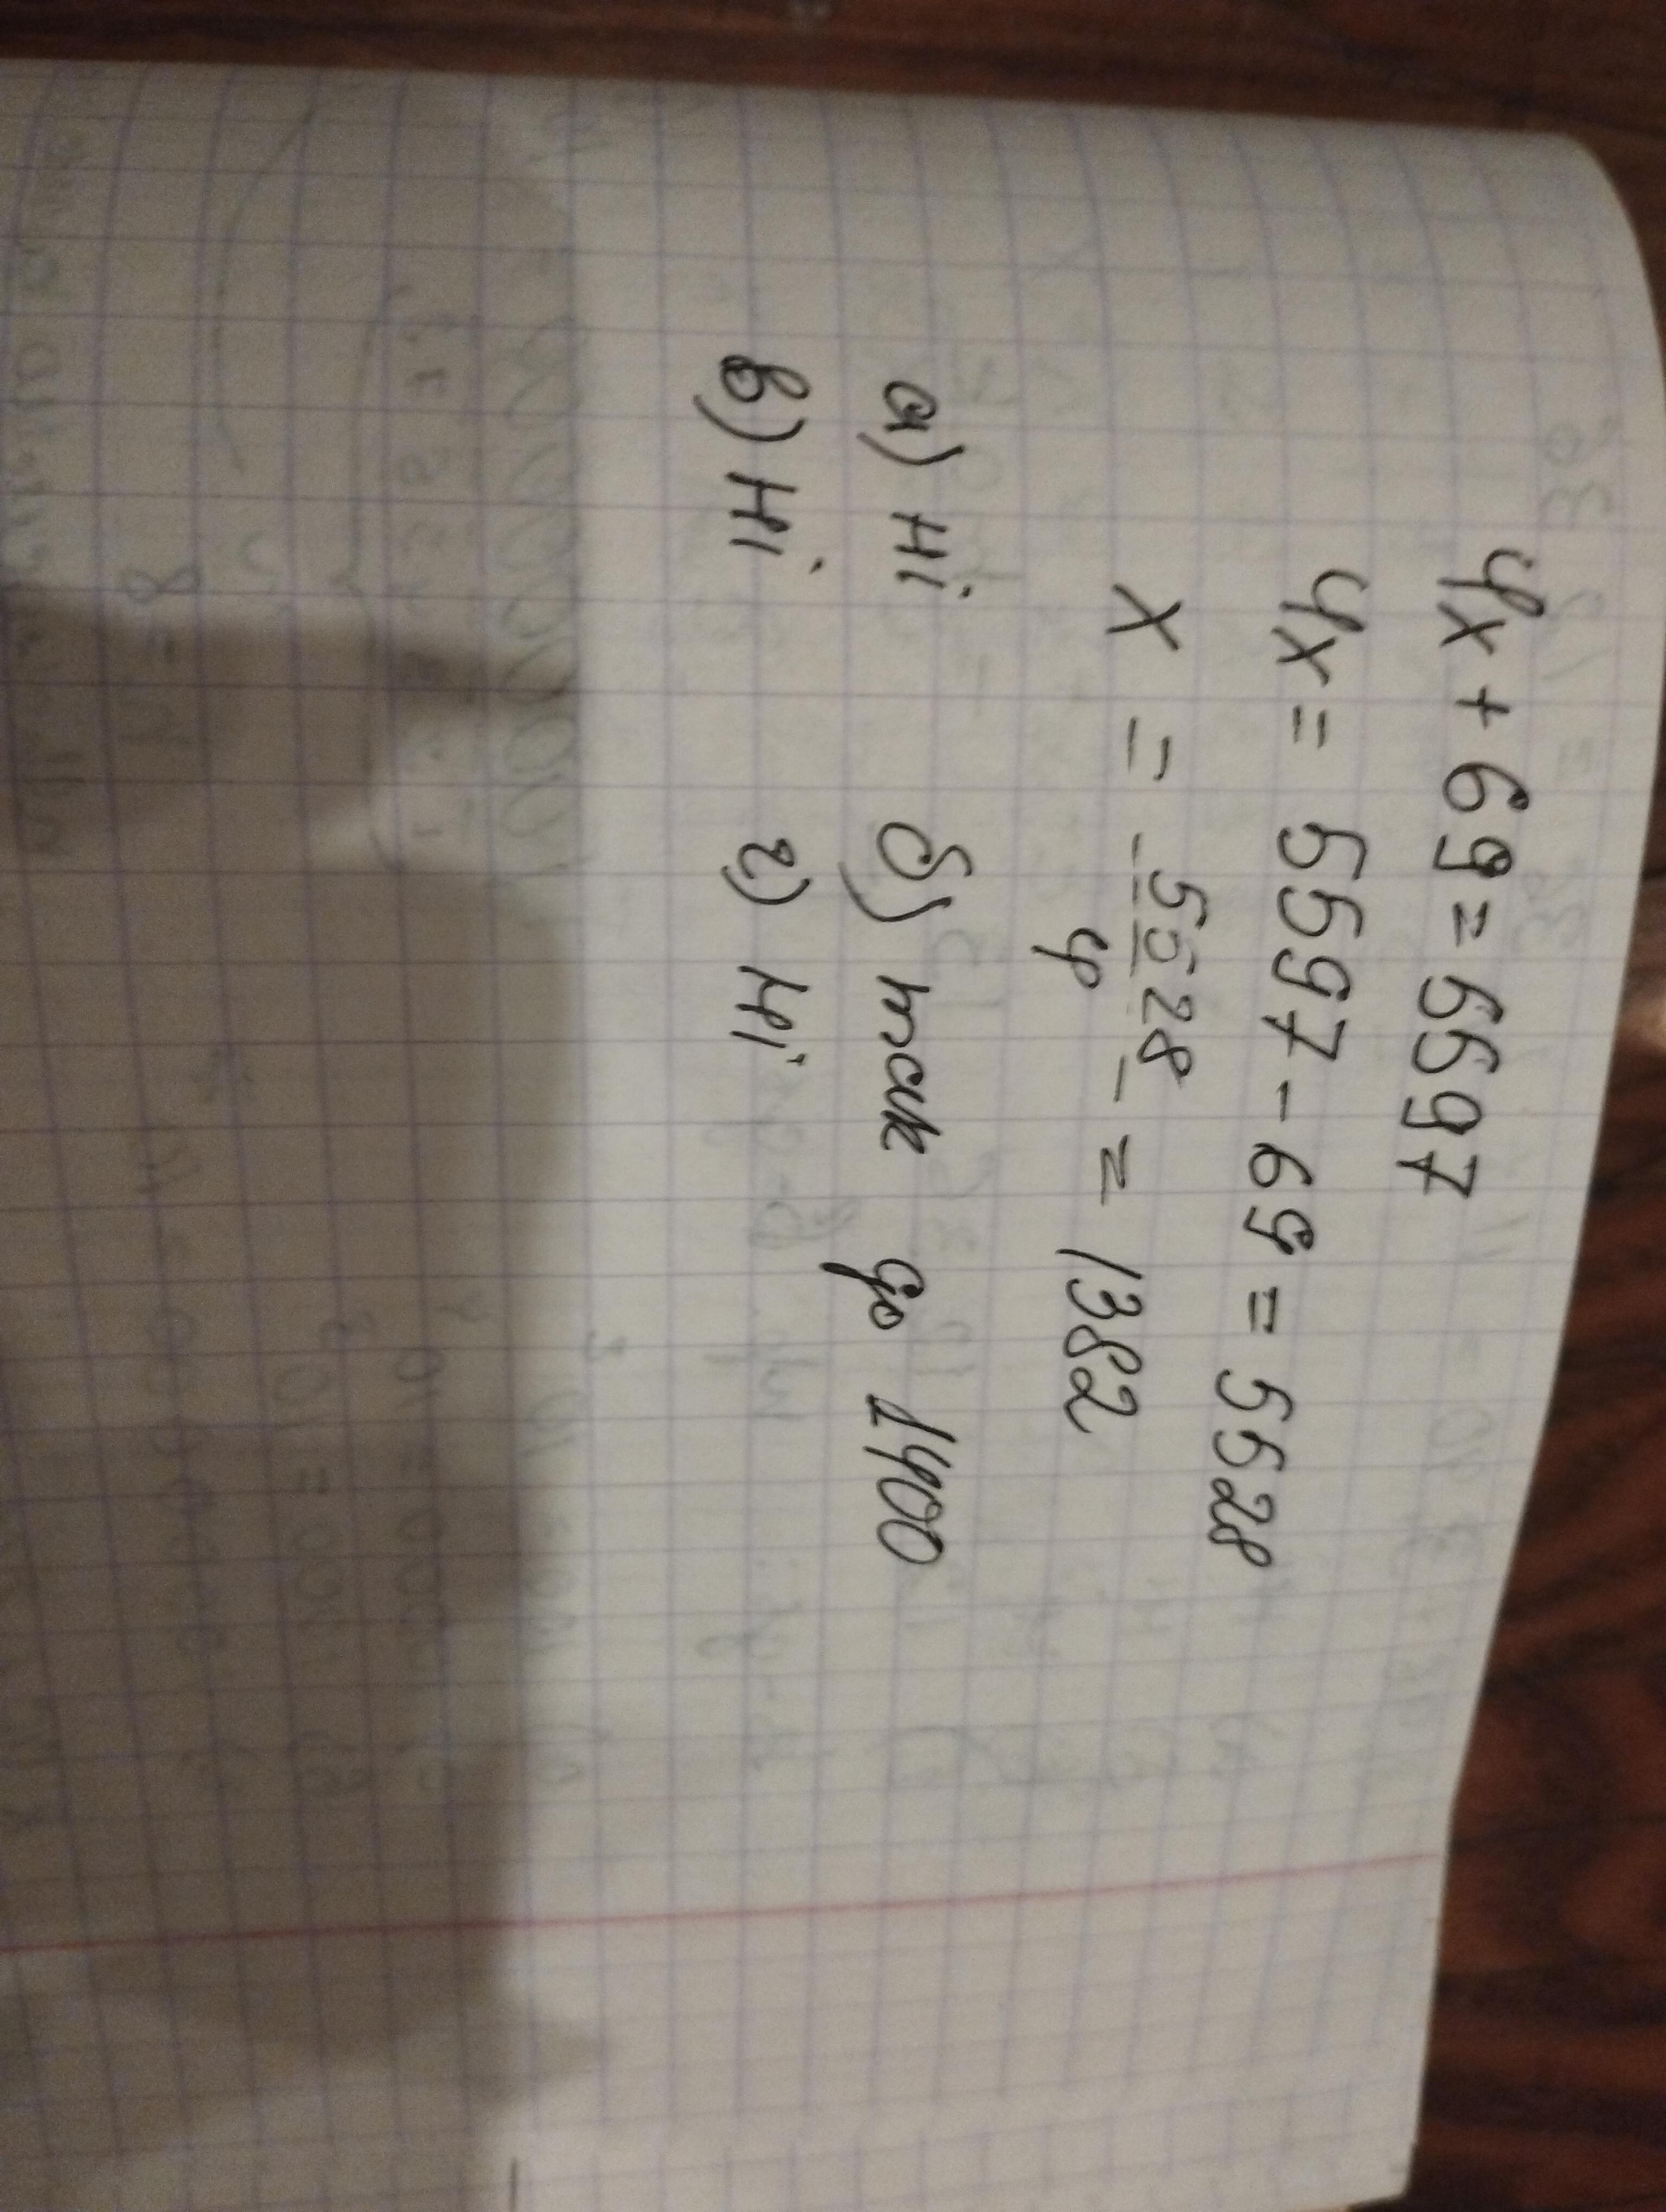 4x + 69 = 5597
4x = 5597 - 69 = 5528
x = 5528/4 = 1382
а) ні б) так до 1400
в) ні г) ні